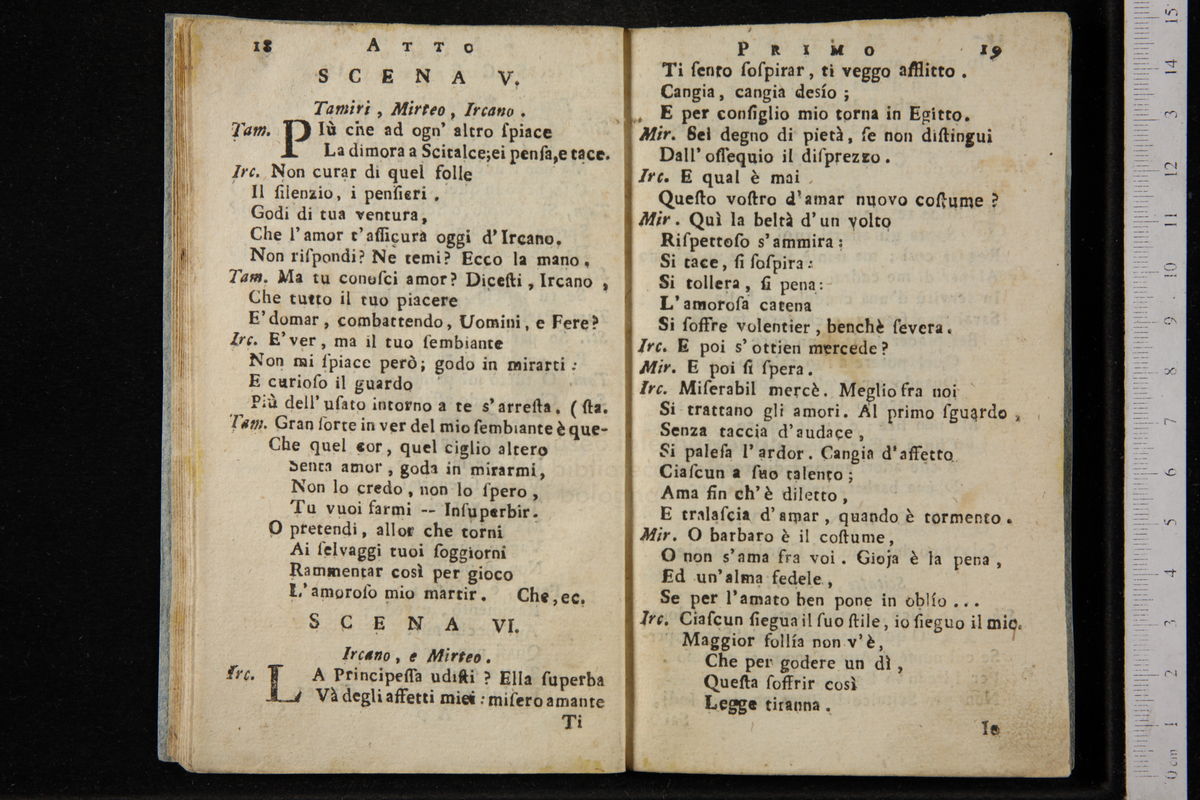 18 ATTO
SCENA V.
Tamiri, Mirteo, Ircano.
Tam. PIù che ad ogn' altro ſpiace
La dimora a Scitalce; ei penſa, e tace.
Irc. Non curar di quel folle
Il ſilenzio, i penſieri.
Godi di tua ventura,
Che l'amor t'aſſicura oggi d'Ircano.
Non riſpondi? Ne temi? Ecco la mano.
Tam. Ma tu conoſci amor? Diceſti, Ircano,
Che tutto il tuo piacere
E' domar, combattendo, Uomini, e Fere?
Irc. E' ver, ma il tuo ſembiante
Non mi ſpiace però; godo in mirarti:
E curioſo il guardo
Più dell' uſato intorno a te s'arreſta. (ſta.
Tam. Gran ſorte in ver del mio ſembiante è que-
Che quel cor, quel ciglio altero
Senta amor, goda in mirarmi,
Non lo credo, non lo ſpero,
Tu vuoi farmi -- Inſuperbir.
O pretendi, allor che torni
Ai ſelvaggi tuoi ſoggiorni
Rammentar così per gioco
L'amoroſo mio martir. Che, ec.
SCENA VI.
Ircano, e Mirteo.
Irc. LA Principeſſa udiſti? Ella ſuperba
Và degli affetti miei: miſero amante
Ti
PRIMO 19
Ti ſento ſoſpirar, ti veggo afflitto.
Cangia, cangia desío;
E per conſiglio mio torna in Egitto.
Mir. Sei degno di pietà, ſe non diſtingui
Dall' oſſequio il diſprezzo.
Irc. E qual è mai
Queſto voſtro d'amar nuovo coſtume?
Mir. Quì la beltà d'un volto
Riſpettoſo s'ammira:
Si tace, ſi ſoſpira:
Si tollera, ſi pena:
L'amoroſa catena
Si ſoffre volentier, benchè ſevera.
Irc. E poi s'ottien mercede?
Mir. E poi ſi ſpera.
Irc. Miſerabil mercè. Meglio fra noi
Si trattano gli amori. Al primo ſguardo,
Senza taccia d'audace,
Si paleſa l'ardor. Cangia d'affetto
Ciaſcun a ſuo talento;
Ama fin ch'è diletto,
E tralaſcia d'amar, quando è tormento.
Mir. O barbaro è il coſtume,
O non s'ama fra voi. Gioja è la pena,
Ed un'alma fedele,
Se per l'amato ben pone in oblío...
Irc. Ciaſcun ſiegua il ſuo ſtile, io ſieguo il mio.
Maggior follía non v'è,
Che per godere un dì,
Queſta ſoffrir così
Legge tiranna.
Io
0 cm 1 2 3 4 5 6 7 8 9 10 11 12 13 14 15